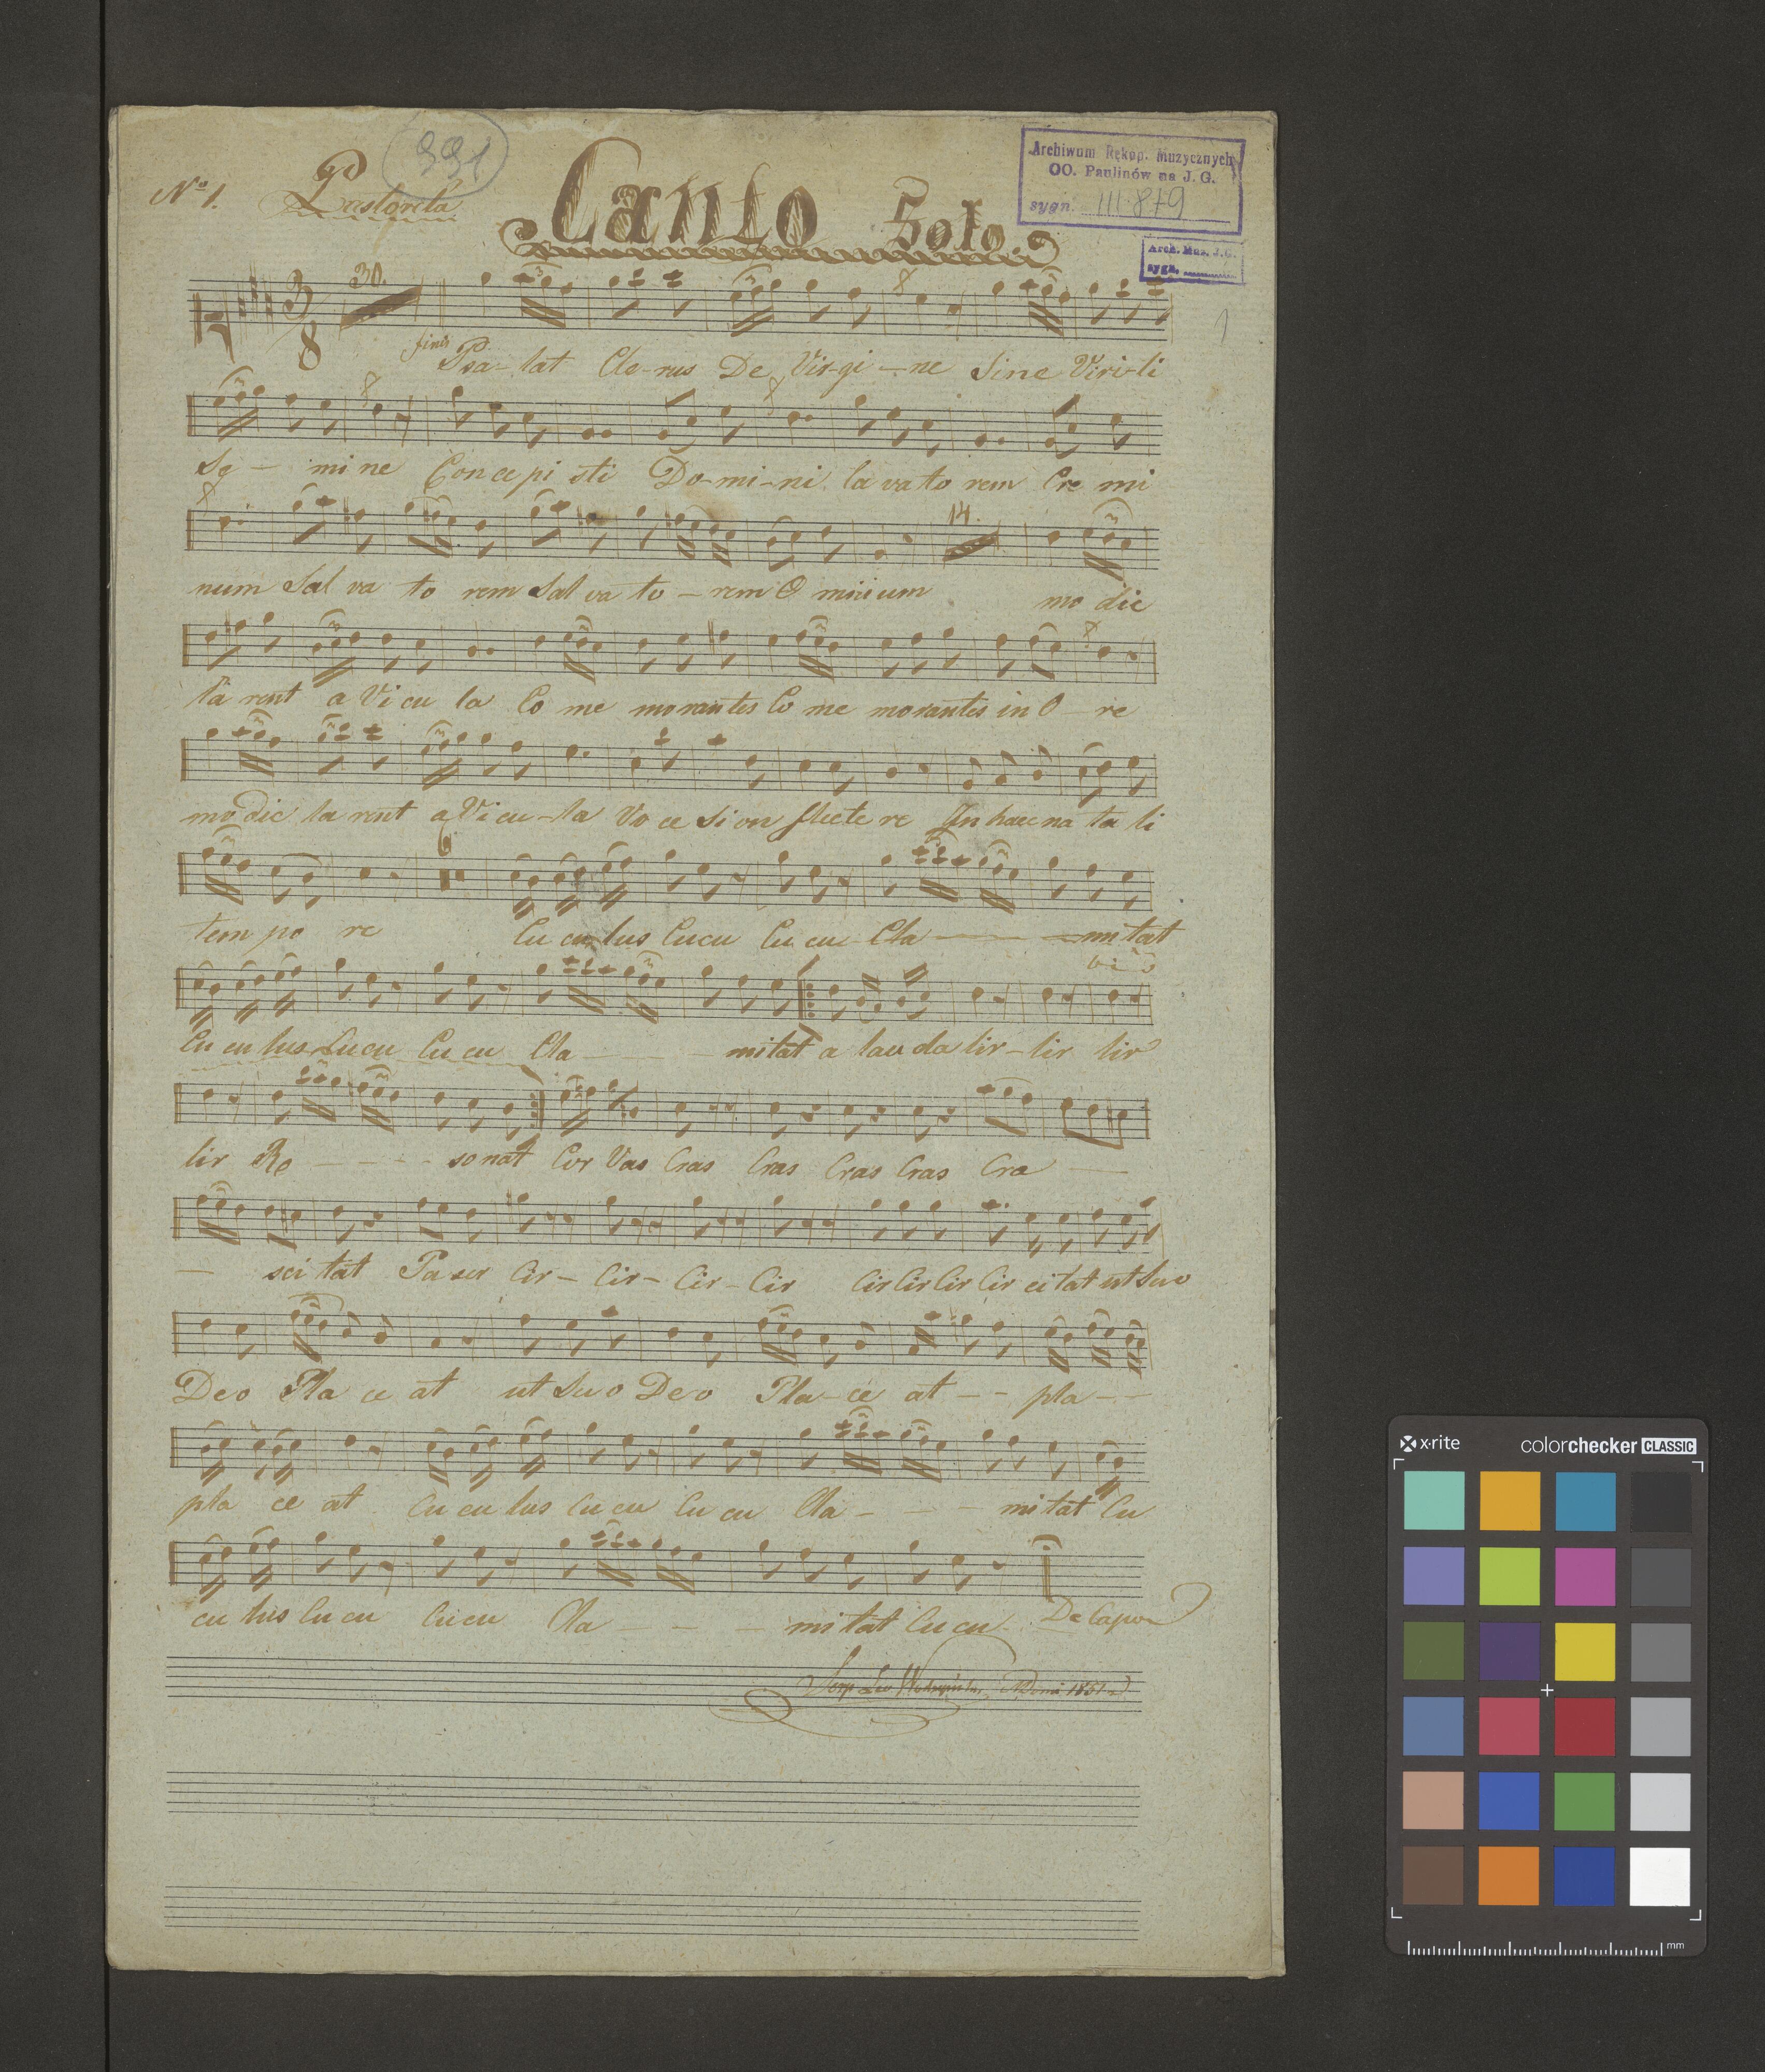 991
Archiwum Rękop. Muzycznych
OO. Paulinów na J. G.
sygn. III-879
Arch. Muz. J.G.
sygn.
No 1. Pastorela Canto Solo
1
3/8 30.
finis
Psa-lat Cle-rus De Vir-gi-ne Sine Viri-li
Se - mi ne Concepi sti Do-mi-ni la va to rem Cre mi
14.
num Sal va to rem Sal va to - rem O mnium mo dic
ta rent a Vi cu la Co me morantes Co me morantes in O re
mo dic ta rent a Vi cu-la Vo ce Si on flecte re In haec na ta li
6
tem po re Cu cu lus Cucu Cu cu Cla - mi tat
bis
Cu cu lus Cucu Cu cu Cla - - - mitat a lau da lir-lir lir
lir Re - - - - sonat Cor Vas Cras Cras Cras Cras Cra -
- sci tat Pa ser Cir- Cir- Cir- Cir Cir Cir Cir Cir ci tat ut Suo
Deo Pla ce at ut Suo Deo Pla-ce at - - pla - -
pla ce at Cu cu lus Cu cu Cu cu Cla - - - mi tat Cu
cu lus Cu cu Cu cu Cla - - - mi tat Cu cu Da Capo
1851
x·rite colorchecker CLASSIC
mm